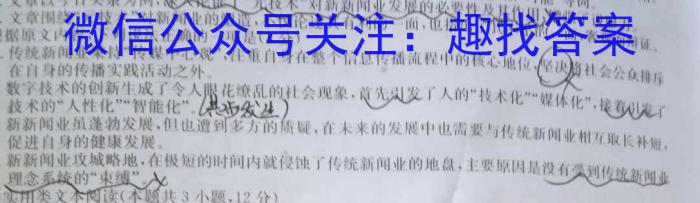 文章以今日头条为例,
技术"对新新闻业发展的必要性及其
文章围
新新闻业的
论
面",也
据原文内
微信公众号关注：趣找答案
传统新闻业
心观",注重自身在整个信息传播流程中的核心地位,坚决将社会公众排斥
在自身的传播实践活动之外。
数字技术的创新生成了令人眼花缭乱的社会现象,首先引发了人的"技术化""媒体化",接着引发了
技术的"人性化""智能化"。(共为发生)
新新闻业虽蓬勃发展,但也遭到多方的质疑,在未来的发展中也需要与传统新闻业相互取长补短,
促进自身的健康发展。
新新闻业攻城略地,在极短的时间内就侵蚀了传统新闻业的地盘,主要原因是没有受到传统新闻业
理念系统的"束缚"。
实用类文本阅读(本题共3小题,12分)